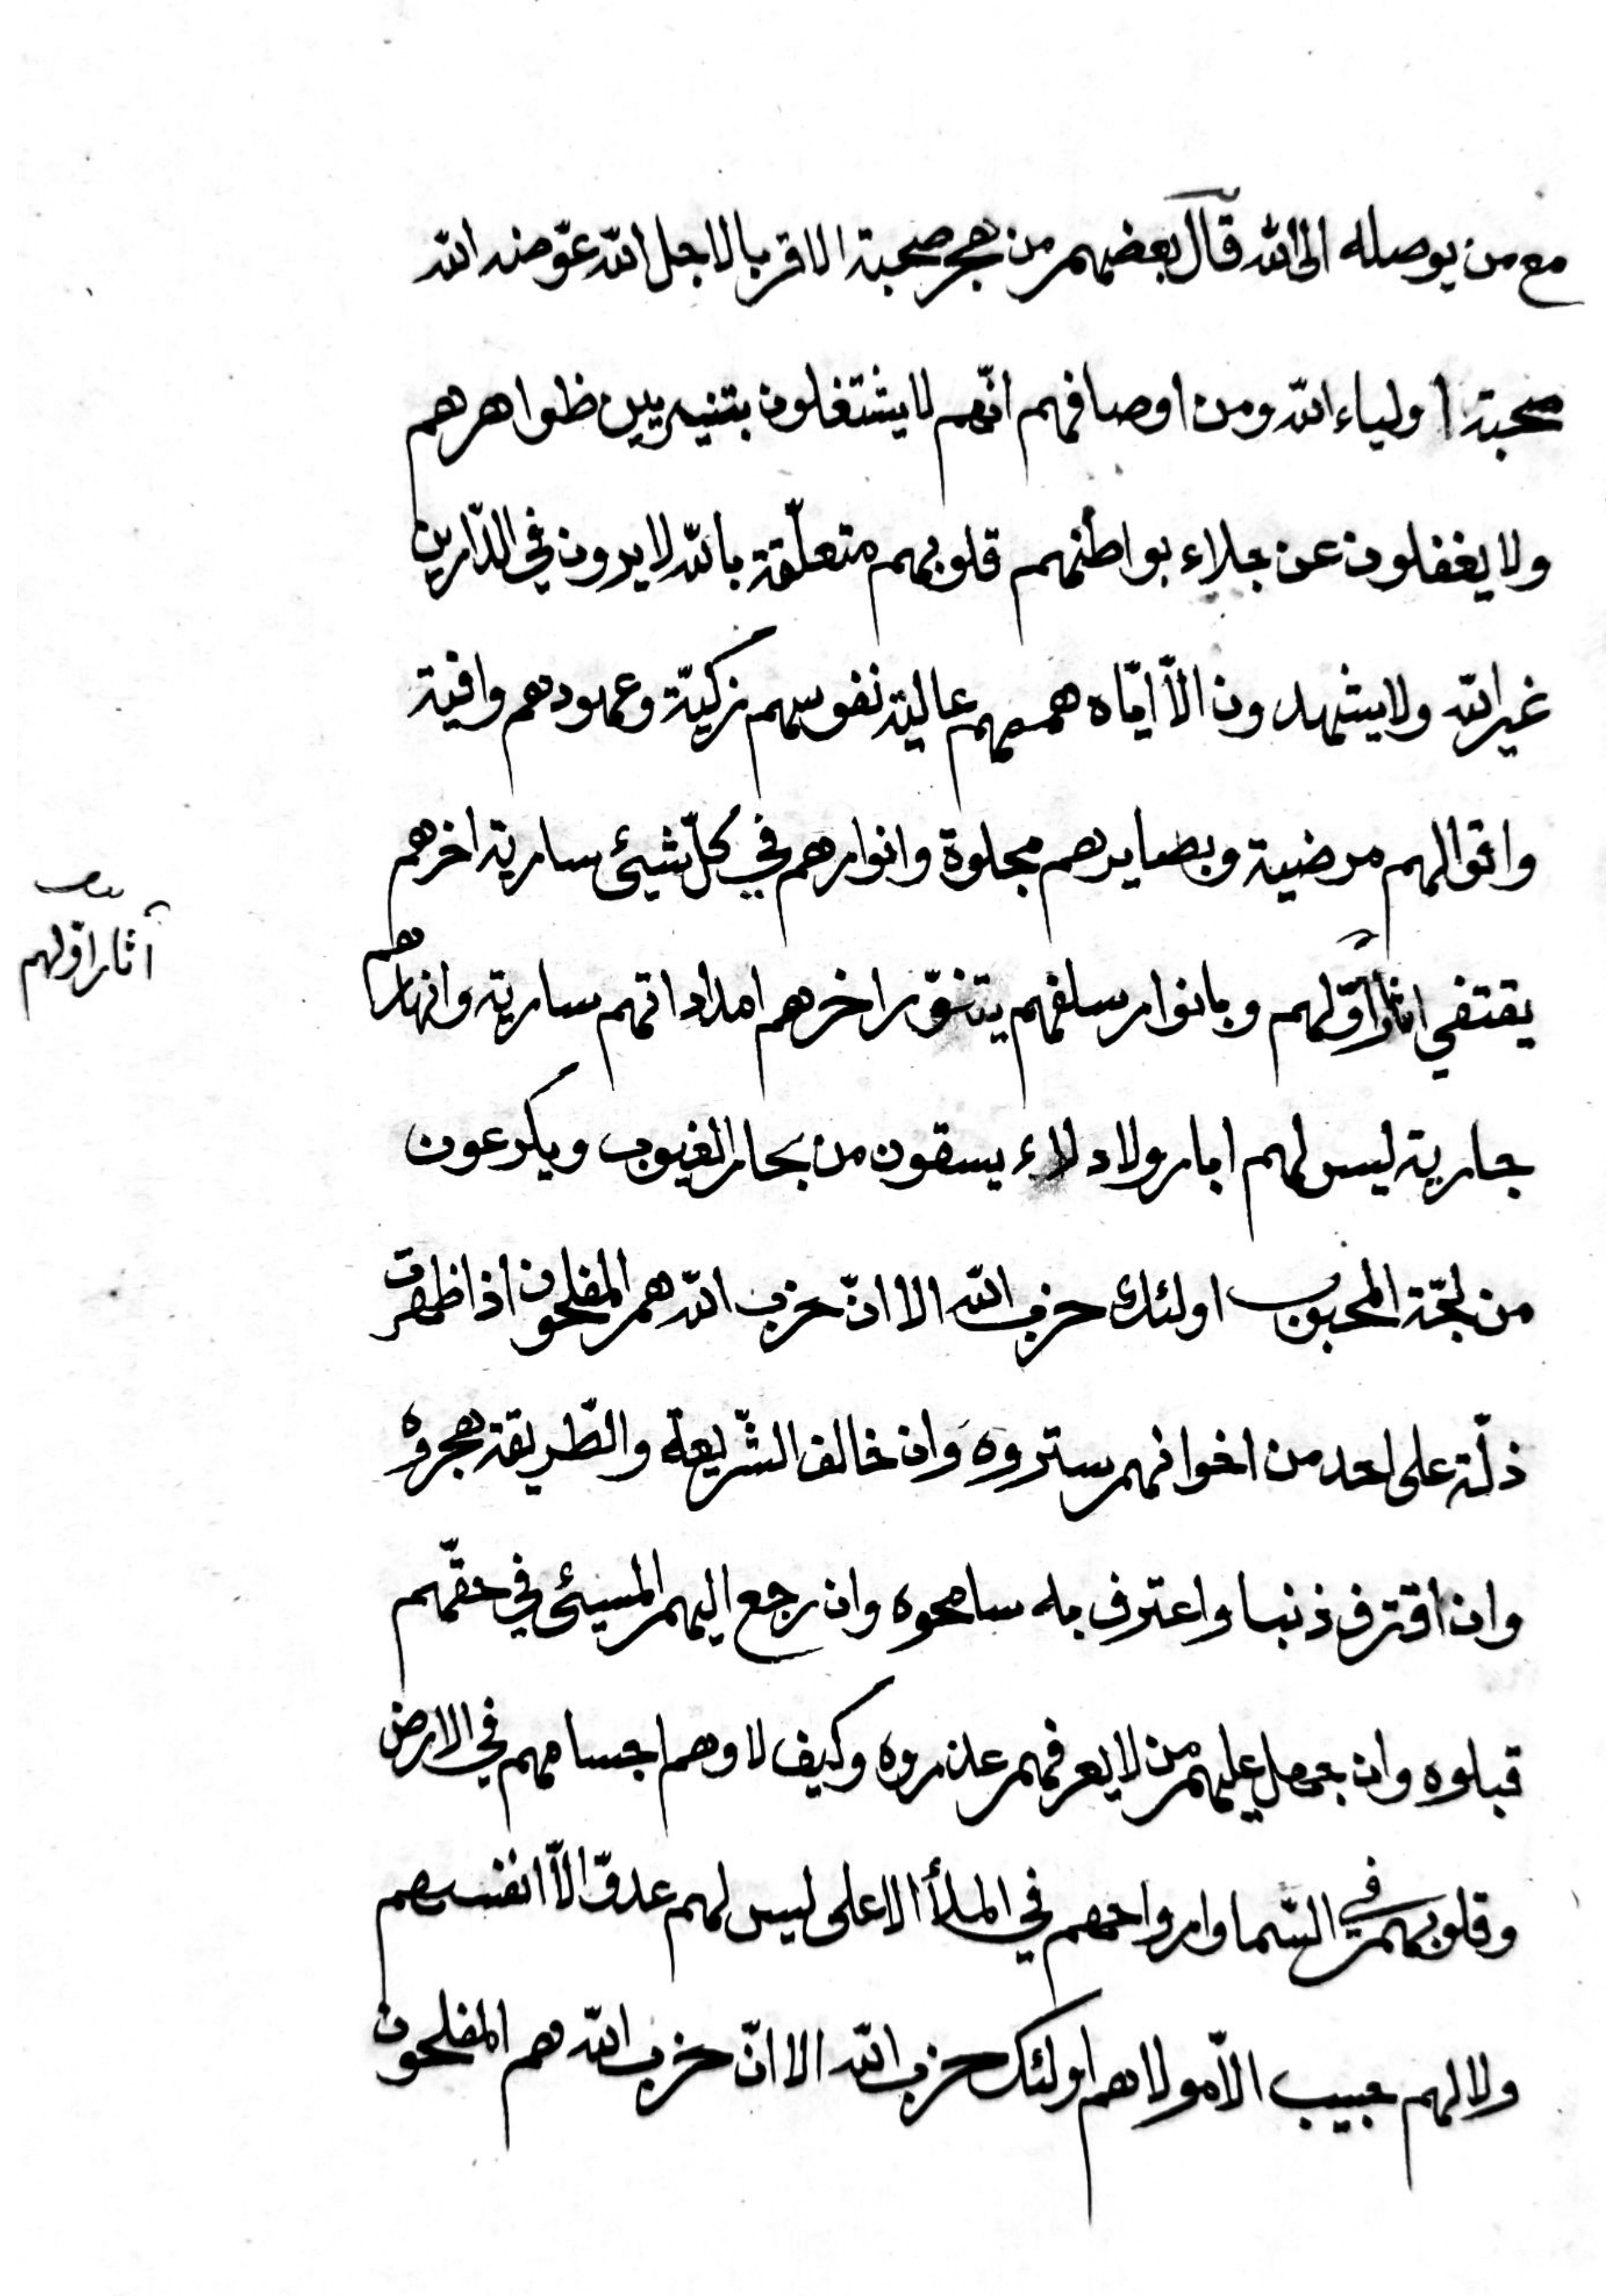 مع من يوصله الى الله قال بعضهم من هجر صحبة الاقربا لاجل الله عوّضه الله
صحبة اولياء الله ومن اوصافهم انّهم لا يشتغلون بتزيين ظواهرهم
ولا يغفلون عن جلاء بواطنهم قلوبهم متعلّقة بالله لا يرون في الدّارين
غير الله ولا يشهدون الّا ايّاه هممهم عالية نفوسهم زكيّة وعهودهم وافية
واقوالهم مرضية وبصايرهم مجلوة وانوارهم في كلّ شيئ سارية اخرهم
يقتفي اثار اوّلهم وبانوار سلفهم يتنوّر اخرهم امداداتهم سارية وانهارهم
آثار اوّلهم
جارية ليس لهم ابار ولا دلاء يسقون من بحار الغيوب ويكرعون
من لجّة المحبوب اولئك حزب الله الا انّ حزب الله هم المفلحون اذا ظهرت
ذلّة على احد من اخوانهم ستروه وان خالف الشّريعة والطّريقة هجروه
وان اقترف ذنبا واعترف به سامحوه وان رجع اليهم المسيئ في حقّهم
قبلوه وان جهل عليهم من لا يعرفهم عذروه وكيف لا وهم اجسامهم في الارض
وقلوبهم في السّما وارواحهم في الملأ الاعلى ليس لهم عدوّ الّا انفسهم
ولا لهم حبيب الّا مولاهم اولئك حزب الله الا انّ حزب الله هم المفلحون